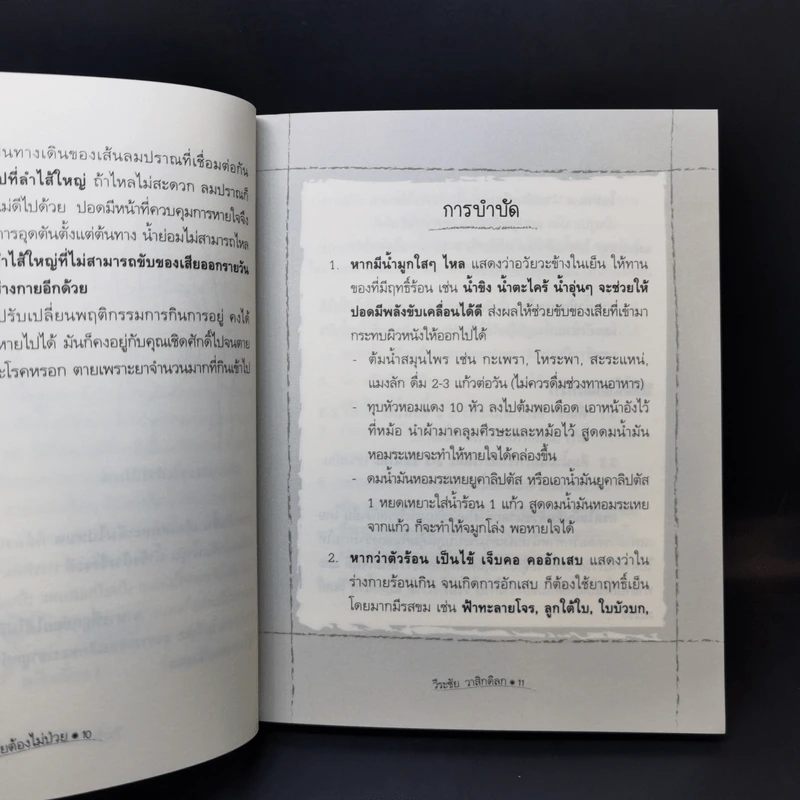 นทางเดินของเส้นลมปราณที่เชื่อมต่อกัน
ปที่ลำไส้ใหญ่ ถ้าไหลไม่สะดวก ลมปราณก็
ม่ดีไปด้วย ปอดมีหน้าที่ควบคุมการหายใจจึง
ารอุดตันตั้งแต่ต้นทาง น้ำย่อมไม่สามารถไหล
ำไส้ใหญ่ที่ไม่สามารถขับของเสียออกรายวัน
่างกายอีกด้วย
ปรับเปลี่ยนพฤติกรรมการกินการอยู่ คงได้
หายไปได้ มันก็คงอยู่กับคุณเชิดศักดิ์ไปจนตาย
ะโรคหรอก ตายเพราะยาจำนวนมากที่กินเข้าไป
ยต้องไม่ป่วย • 10
การบำบัด
1. หากมีน้ำมูกใสๆ ไหล แสดงว่าอวัยวะข้างในเย็น ให้ทาน
ของที่มีฤทธิ์ร้อน เช่น น้ำขิง น้ำตะไคร้ น้ำอุ่นๆ จะช่วยให้
ปอดมีพลังขับเคลื่อนได้ดี ส่งผลให้ช่วยขับของเสียที่เข้ามา
กระทบผิวหนังให้ออกไปได้
- ต้มน้ำสมุนไพร เช่น กะเพรา, โหระพา, สะระแหน่,
แมงลัก ดื่ม 2-3 แก้วต่อวัน (ไม่ควรดื่มช่วงทานอาหาร)
- ทุบหัวหอมแดง 10 หัว ลงไปต้มพอเดือด เอาหน้าอังไว้
ที่หม้อ นำผ้ามาคลุมศีรษะและหม้อไว้ สูดดมน้ำมัน
หอมระเหยจะทำให้หายใจได้คล่องขึ้น
- ดมน้ำมันหอมระเหยยูคาลิปตัส หรือเอาน้ำมันยูคาลิปตัส
1 หยดเหยาะใส่น้ำร้อน 1 แก้ว สูดดมน้ำมันหอมระเหย
จากแก้ว ก็จะทำให้จมูกโล่ง พอหายใจได้
2. หากว่าตัวร้อน เป็นไข้ เจ็บคอ คออักเสบ แสดงว่าใน
ร่างกายร้อนเกิน จนเกิดการอักเสบ ก็ต้องใช้ยาฤทธิ์เย็น
โดยมากมีรสขม เช่น ฟ้าทะลายโจร, ลูกใต้ใบ, ใบบัวบก,
วีระชัย วาสิกดิลก • 11